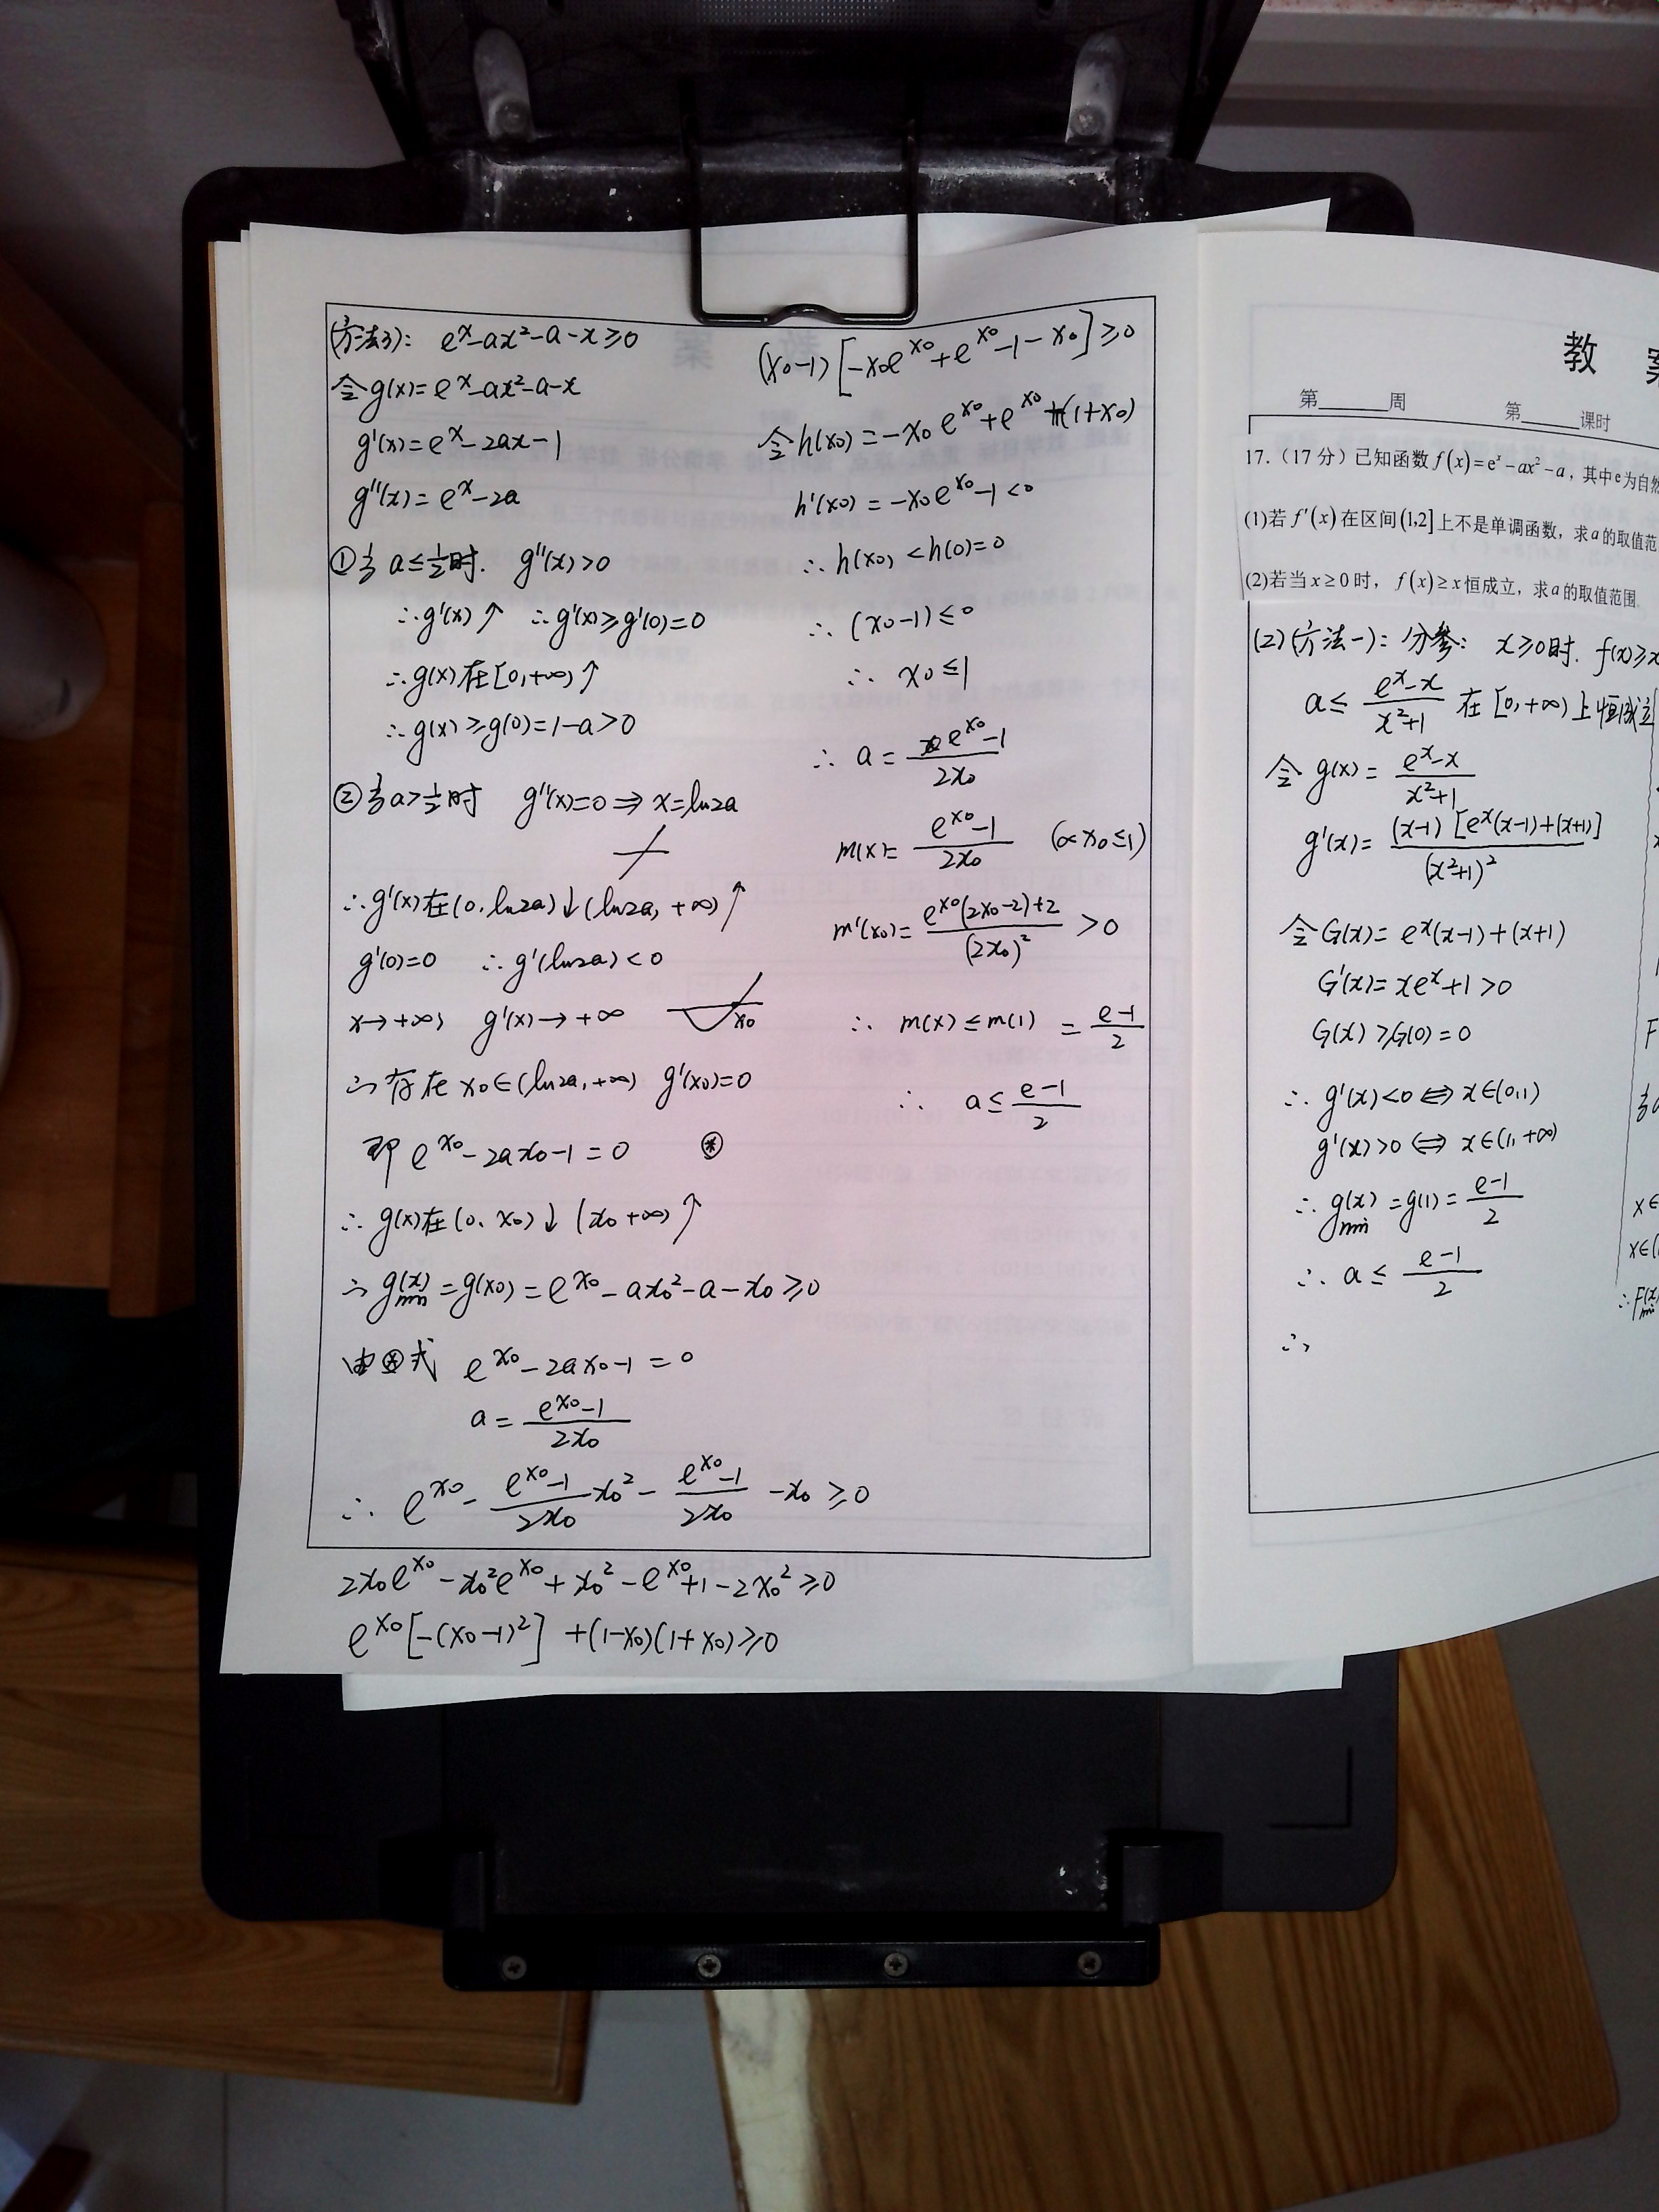 (方法3): eˣ-ax²-a-x≥0
令g(x)=eˣ-ax²-a-x
g'(x)=eˣ-2ax-1
g''(x)=eˣ-2a
①当 a≤1/2时. g''(x)>0
∴g'(x)↑ ∴g'(x)≥g'(0)=0
∴g(x)在[0,+∞)↑
∴g(x)≥g(0)=1-a>0
②当a>1/2时 g''(x)=0⇒x=ln2a
∴g'(x)在(0,ln2a)↓(ln2a,+∞)↑
g'(0)=0 ∴g'(ln2a)<0
x→+∞, g'(x)→+∞ x₀
∴存在x₀∈(ln2a,+∞) g'(x₀)=0
即 e^x₀-2ax₀-1=0 ⊛
∴g(x)在(0,x₀)↓(x₀+∞)↑
∴g(x)min=g(x₀)=e^x₀-ax₀²-a-x₀≥0
由⊛式 e^x₀-2ax₀-1=0
a=(e^x₀-1)/(2x₀)
∴ e^x₀-(e^x₀-1)/(2x₀)x₀²-(e^x₀-1)/(2x₀)-x₀≥0
2x₀e^x₀-x₀²e^x₀+x₀²-e^x₀+1-2x₀²≥0
e^x₀[-(x₀-1)²]+(1-x₀)(1+x₀)≥0
(x₀-1)[-x₀e^x₀+e^x₀-1-x₀]≥0
令h(x₀)=-x₀e^x₀+e^x₀-(1+x₀)
h'(x₀)=-x₀e^x₀-1<0
∴h(x₀)<h(0)=0
∴(x₀-1)≤0
∴ x₀≤1
∴ a=(e^x₀-1)/(2x₀)
m(x)=(e^x₀-1)/(2x₀) (0<x₀≤1)
m'(x₀)=(e^x₀(2x₀-2)+2)/(2x₀)²>0
∴ m(x)≤m(1)=(e-1)/2
∴ a≤(e-1)/2
教
第______周 第______课时
17.（17分）已知函数f(x)=eˣ-ax²-a，其中e为自然
(1)若f'(x)在区间(1,2]上不是单调函数，求a的取值范
(2)若当x≥0时，f(x)≥x恒成立，求a的取值范围
(2)(方法一): 分参: x≥0时. f(x)≥x
a≤(eˣ-x)/(x²+1) 在[0,+∞)上恒成立
令 g(x)=(eˣ-x)/(x²+1)
g'(x)=((x-1)[eˣ(x-1)+(x+1)])/(x²+1)²
令G(x)=eˣ(x-1)+(x+1)
G'(x)=xeˣ+1>0
G(x)≥G(0)=0
∴ g'(x)<0⇔x∈(0,1)
g'(x)>0⇔x∈(1,+∞)
∴g(x)min=g(1)=(e-1)/2
∴ a≤(e-1)/2
∴
F
x∈
x∈(
∴F(x)min